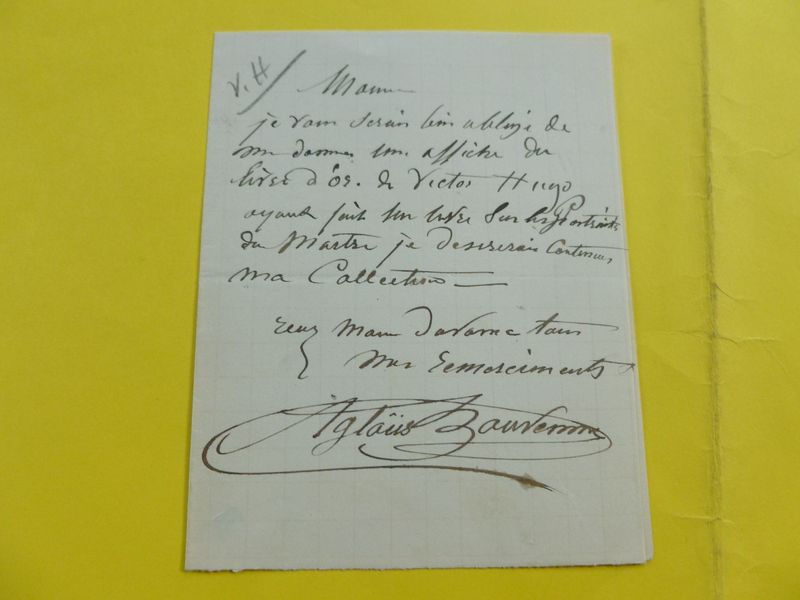 V. H
Monsieur
je vous serais bien obligé de
me donner une affiche du
livre d'or de Victor Hugo
ayant fait un livre sur les Portraits
du Maitre je desirerais continuer
ma Collection
Monsieur d'avance tous
mes remerciments
Aglaüs Bouvenne